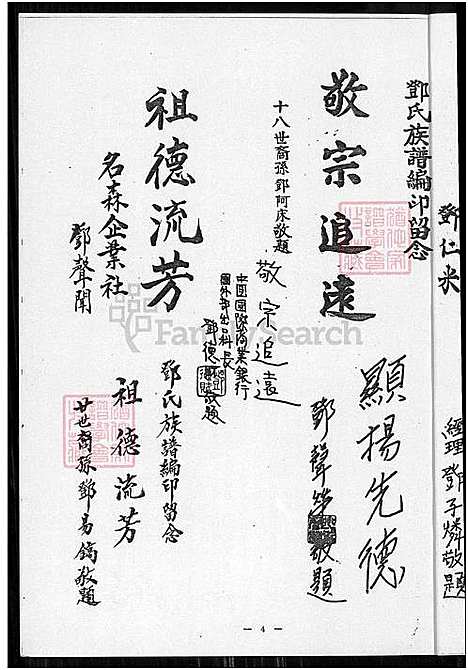 鄧仁米
經理鄧子燐敬題
鄧氏族譜編印留念
敬宗追遠
十八世裔孫鄧阿床敬題
顯揚先德
鄧聲
敬題
敬宗追遠
中國國際商業銀行
國外部出口科長
鄧德
敬題
祖德流芳
名森企業社
鄧聲開
鄧氏族譜編印留念
祖德流芳
廿世裔孫鄧易鎬敬題
FamilySearch
— 4 —